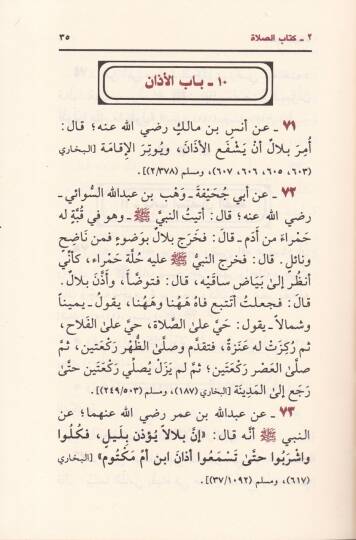 ٢ ـ كتاب الصلاة ٣٥
١٠ ـ بـاب الأذان
٧١ ـ عن أنس بن مالكٍ رضي الله عنه؛ قال:
أُمِرَ بـلالٌ أنْ يَشْفَعَ الأذَانَ، ويُوتِرَ الإقامَة [البخاري
(٦٠٣، ٦٠٥، ٦٠٦، ٦٠٧)، ومسلم (٢/٣٧٨)].
٧٢ ـ عن أبي جُحَيفَةَ ـ وَهْب بن عبدالله السُّوائي ـ
رضي الله عنه؛ قال: أتيتُ النبيَّ ﷺ ـ وهو في قُبَّةٍ له
حَمْراءَ من أَدَمٍ ـ قالَ: فخَرَج بلالٌ بوَضوءٍ فمن ناضِحٍ
ونائلٍ. قال: فخرج النبيُّ ﷺ عليه حُلَّة حَمْراء، كأنِّي
أنظُر إلى بَيَاض ساقَيْه، قال: فتوضَّأ، وأذَّنَ بـلالٌ.
قالَ: فـجعلتُ أتتبع فاهُ هَـهُنا وهَـهُنـا، يقولُ ـ يميناً
وشمالاً ـ يقول: حَيَّ على الصَّلاة، حَي على الفَلاح،
ثم رُكِزَتْ له عَنَزَةٌ، فتقدَّم وصلَّى الظُّهْر رَكْعَتين، ثمَّ
صلَّى العَصْر رَكْعَتين؛ ثمَّ لم يَزَلْ يُصلِّي رَكْعَتين حتَّى
رَجَع إلى المَدِينَة [البخاري (١٨٧)، ومسلم (٢٤٩/٥٠٣)].
٧٣ ـ عن عبدالله بن عمر رضي الله عنهما؛ عن
النبي ﷺ أنَّه قال: «إنَّ بلالاً يُؤذن بِلَيلٍ، فكُلُوا
واشْرَبُوا حتَّى تَسْمَعُوا أذانَ ابن أمِّ مَكتُوم» [البخاري
(٦١٧)، ومسلم (٣٧/١٠٩٢)].